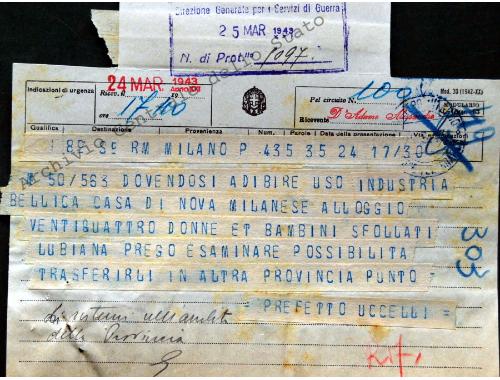 Direzione Generale per i Servizi di Guerra
25 MAR 1943
N. di Prot. 1097.
Archivio Centrale dello Stato
24 MAR. 1943
Indicazioni di urgenza
Ricev. il 19
ore 17.40
Pel circuito N. 100
Ricevente D'Adamo
Mod. 30 (1942-XX)
Qualifica Destinazione Provenienza Num. Parole Data della presentazione Via
RM MILANO P 435 35 24 17/30
50/563 DOVENDOSI ADIBIRE USO INDUSTRIA
BELLICA CASA DI NOVA MILANESE ALLOGGIO
VENTIQUATTRO DONNE ET BAMBINI SFOLLATI
LUBIANA PREGO ESAMINARE POSSIBILITA
TRASFERIRLI IN ALTRA PROVINCIA PUNTO =
= PREFETTO UCCELLI =
303
Li sistemi nell'ambito
della Provincia